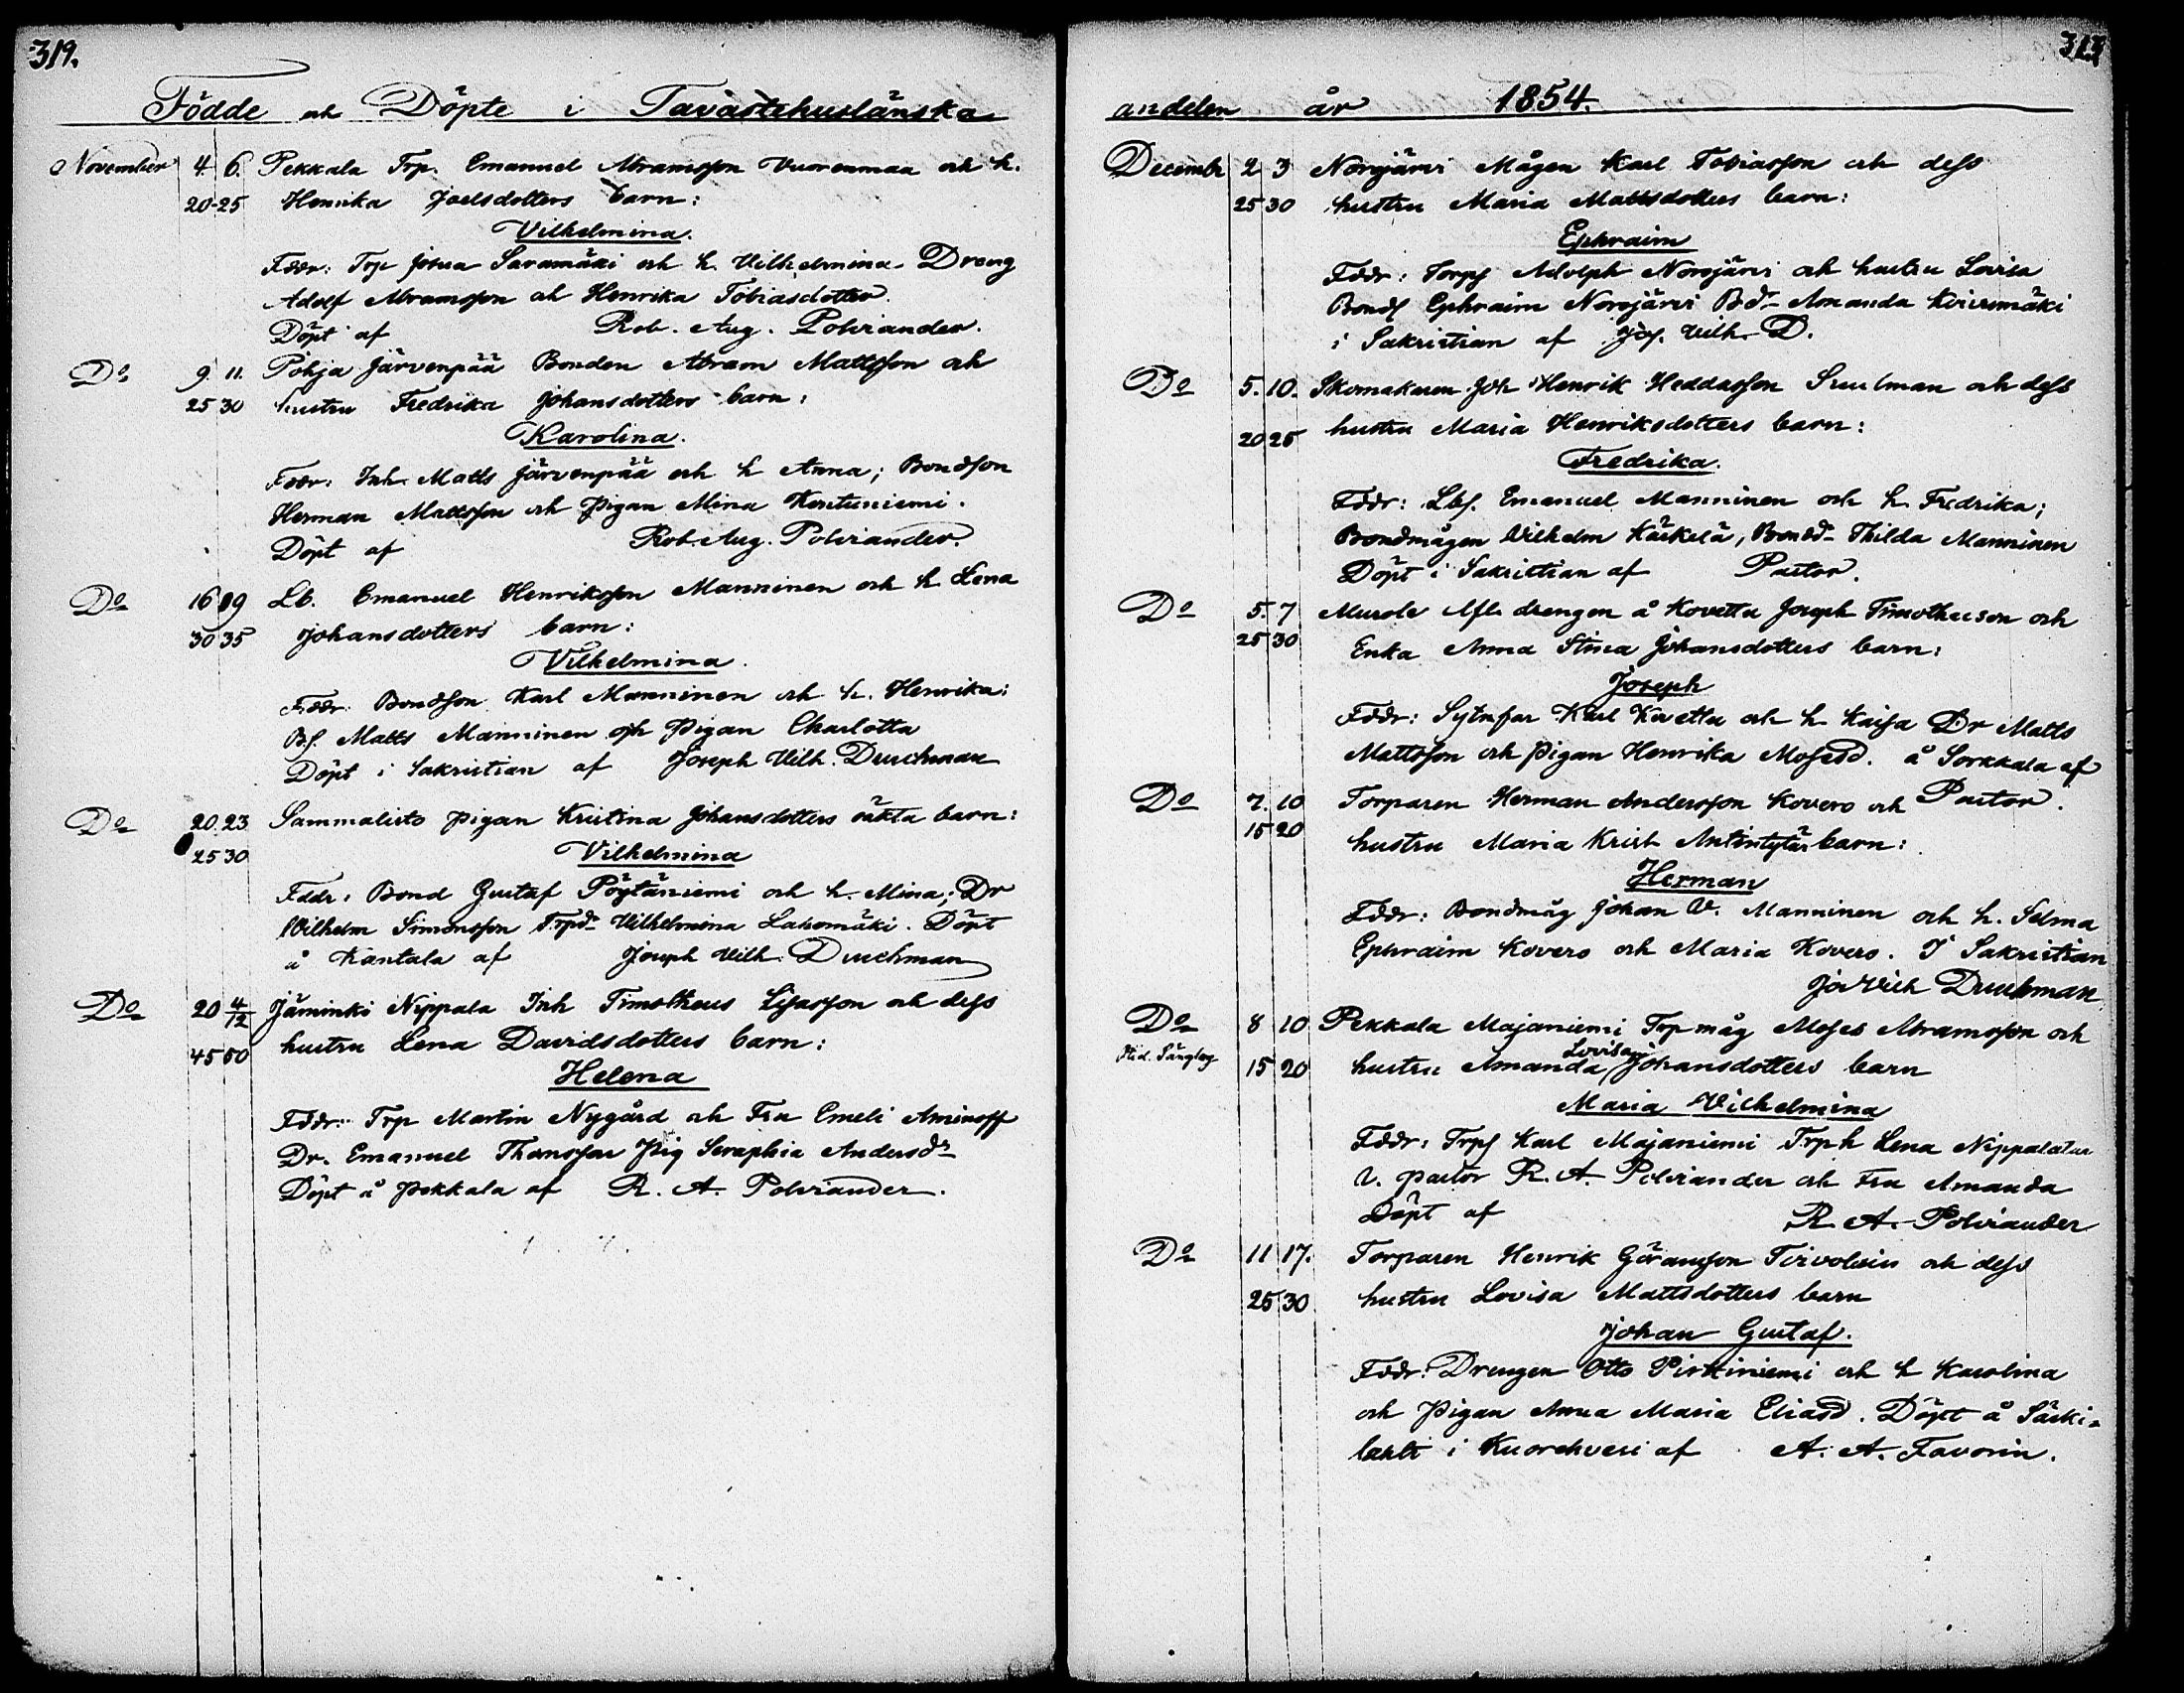 319.
Födde och Döpte i Tavastehuslänska
November 4. 6. Pekkala Trp. Emanuel Abramsson Vuorenmaa och h.
20-25 Henrika Joelsdotters barn:
Vilhelmina.
Fddr: Trp Josua Saramäki och h. Vilhelmina Dreng
Adolf Abramsson och Henrika Tobiasdotter.
Döpt af Rob. Aug. Polviander.
Do 9. 11. Pohja Järvenpää Bonden Abram Mattsson och
25 30 hustru Fredrika Johansdotters barn:
Karolina.
Fddr: Inh. Matts Järvenpää och h Anna; Bondson
Herman Mattsson och Pigan Mina Kontuniemi.
Döpt af Rob. Aug. Polviander.
Do 16 19 Lb. Emanuel Henriksson Manninen och h. Lena
30 35 Johansdotters barn:
Vilhelmina.
Fddr: Bondson Karl Manninen och h. Henrika;
Bs. Matts Manninen och Pigan Charlotta
Döpt i Sakristian af Joseph Vilh. Durchman
Do 20. 23. Sammalisto pigan Kristina Johansdotters oäkta barn:
25 30 Vilhelmina
Fddr: Bond Gustaf Pöytäniemi och h. Mina; Dr
Vilhelm Simonsson Trpd. Vilhelmina Lakomäki. Döpt
å Kantala af Joseph Vilh. Durchman
Do 20 4/12 Jäminki Nippala Inh Timotheus Lisasson och dess
45 50 hustru Lena Davidsdotters barn:
Helena
Fddr: Trp Martin Nygård och Fru Emeli Aminoff
Dr. Emanuel Thomsson Pig Seraphia Andersdr
Döpt å Pekkala af R. A. Polviander.
313
andelen år 1854.
Decembr 2 3 Norojärvi Mågen Karl Tobiasson och dess
25 30 hustru Maria Mattsdotters barn:
Ephraim
Fddr: Torps Adolph Norojärvi och hustru Lovisa
Bonds Ephraim Norojärvi Bd. Amanda
i Sakristian af Jos. Vilh. D.
Do 5. 10. Skomakaren Joh Henrik Heddasson Suulman och dess
20 25 hustru Maria Henriksdotters barn:
Fredrika.
Fddr: Lbs. Emanuel Manninen och h. Fredrika;
Bondmågen Vilhelm Kärkelä, Bondd. Thilda Manninen
Döpt i Sakristian af Pastor.
Do 5. 7 Murole drengen å Kovetta Joseph Timotheuson och
25 30 Enka Anna Stina Johansdotters barn:
Joseph
Fddr: Sytnfar Karl Kovetta och h Kaisa Dr Matts
Mattsson och Pigan Henrika Mosesd. å Sorkkala af
Pastor.
Do 7. 10 Torparen Herman Andersson Kovero och
15 20 hustru Maria Krist. Antintytär barn:
Herman
Fddr: Bondmåg Johan V. Manninen och h. Selma
Ephraim Kovero och Maria Kovero. I Sakristian
Jos Vilh Durchman
Do 8 10 Pekkala Majaniemi Trp måg Moses Abramsson och
15 20 hustru Amanda Lovisa Johansdotters barn
Maria Vilhelmina
Fddr: Trps Karl Majaniemi Trph Lena Nippalatar
V. pastor R. A. Polviander och Fru Amanda
Döpt af R. A. Polviander
Do 11 17. Torparen Henrik Göransson Torvolain och dess
25 30 hustru Lovisa Mattsdotters barn
Johan Gustaf.
Fddr: Drengen Otto Pirttiniemi och h Karolina
och Pigan Anna Maria Eliasd. Döpt å Särki-
lahti i Kuorehvesi af A. A. Favorin.